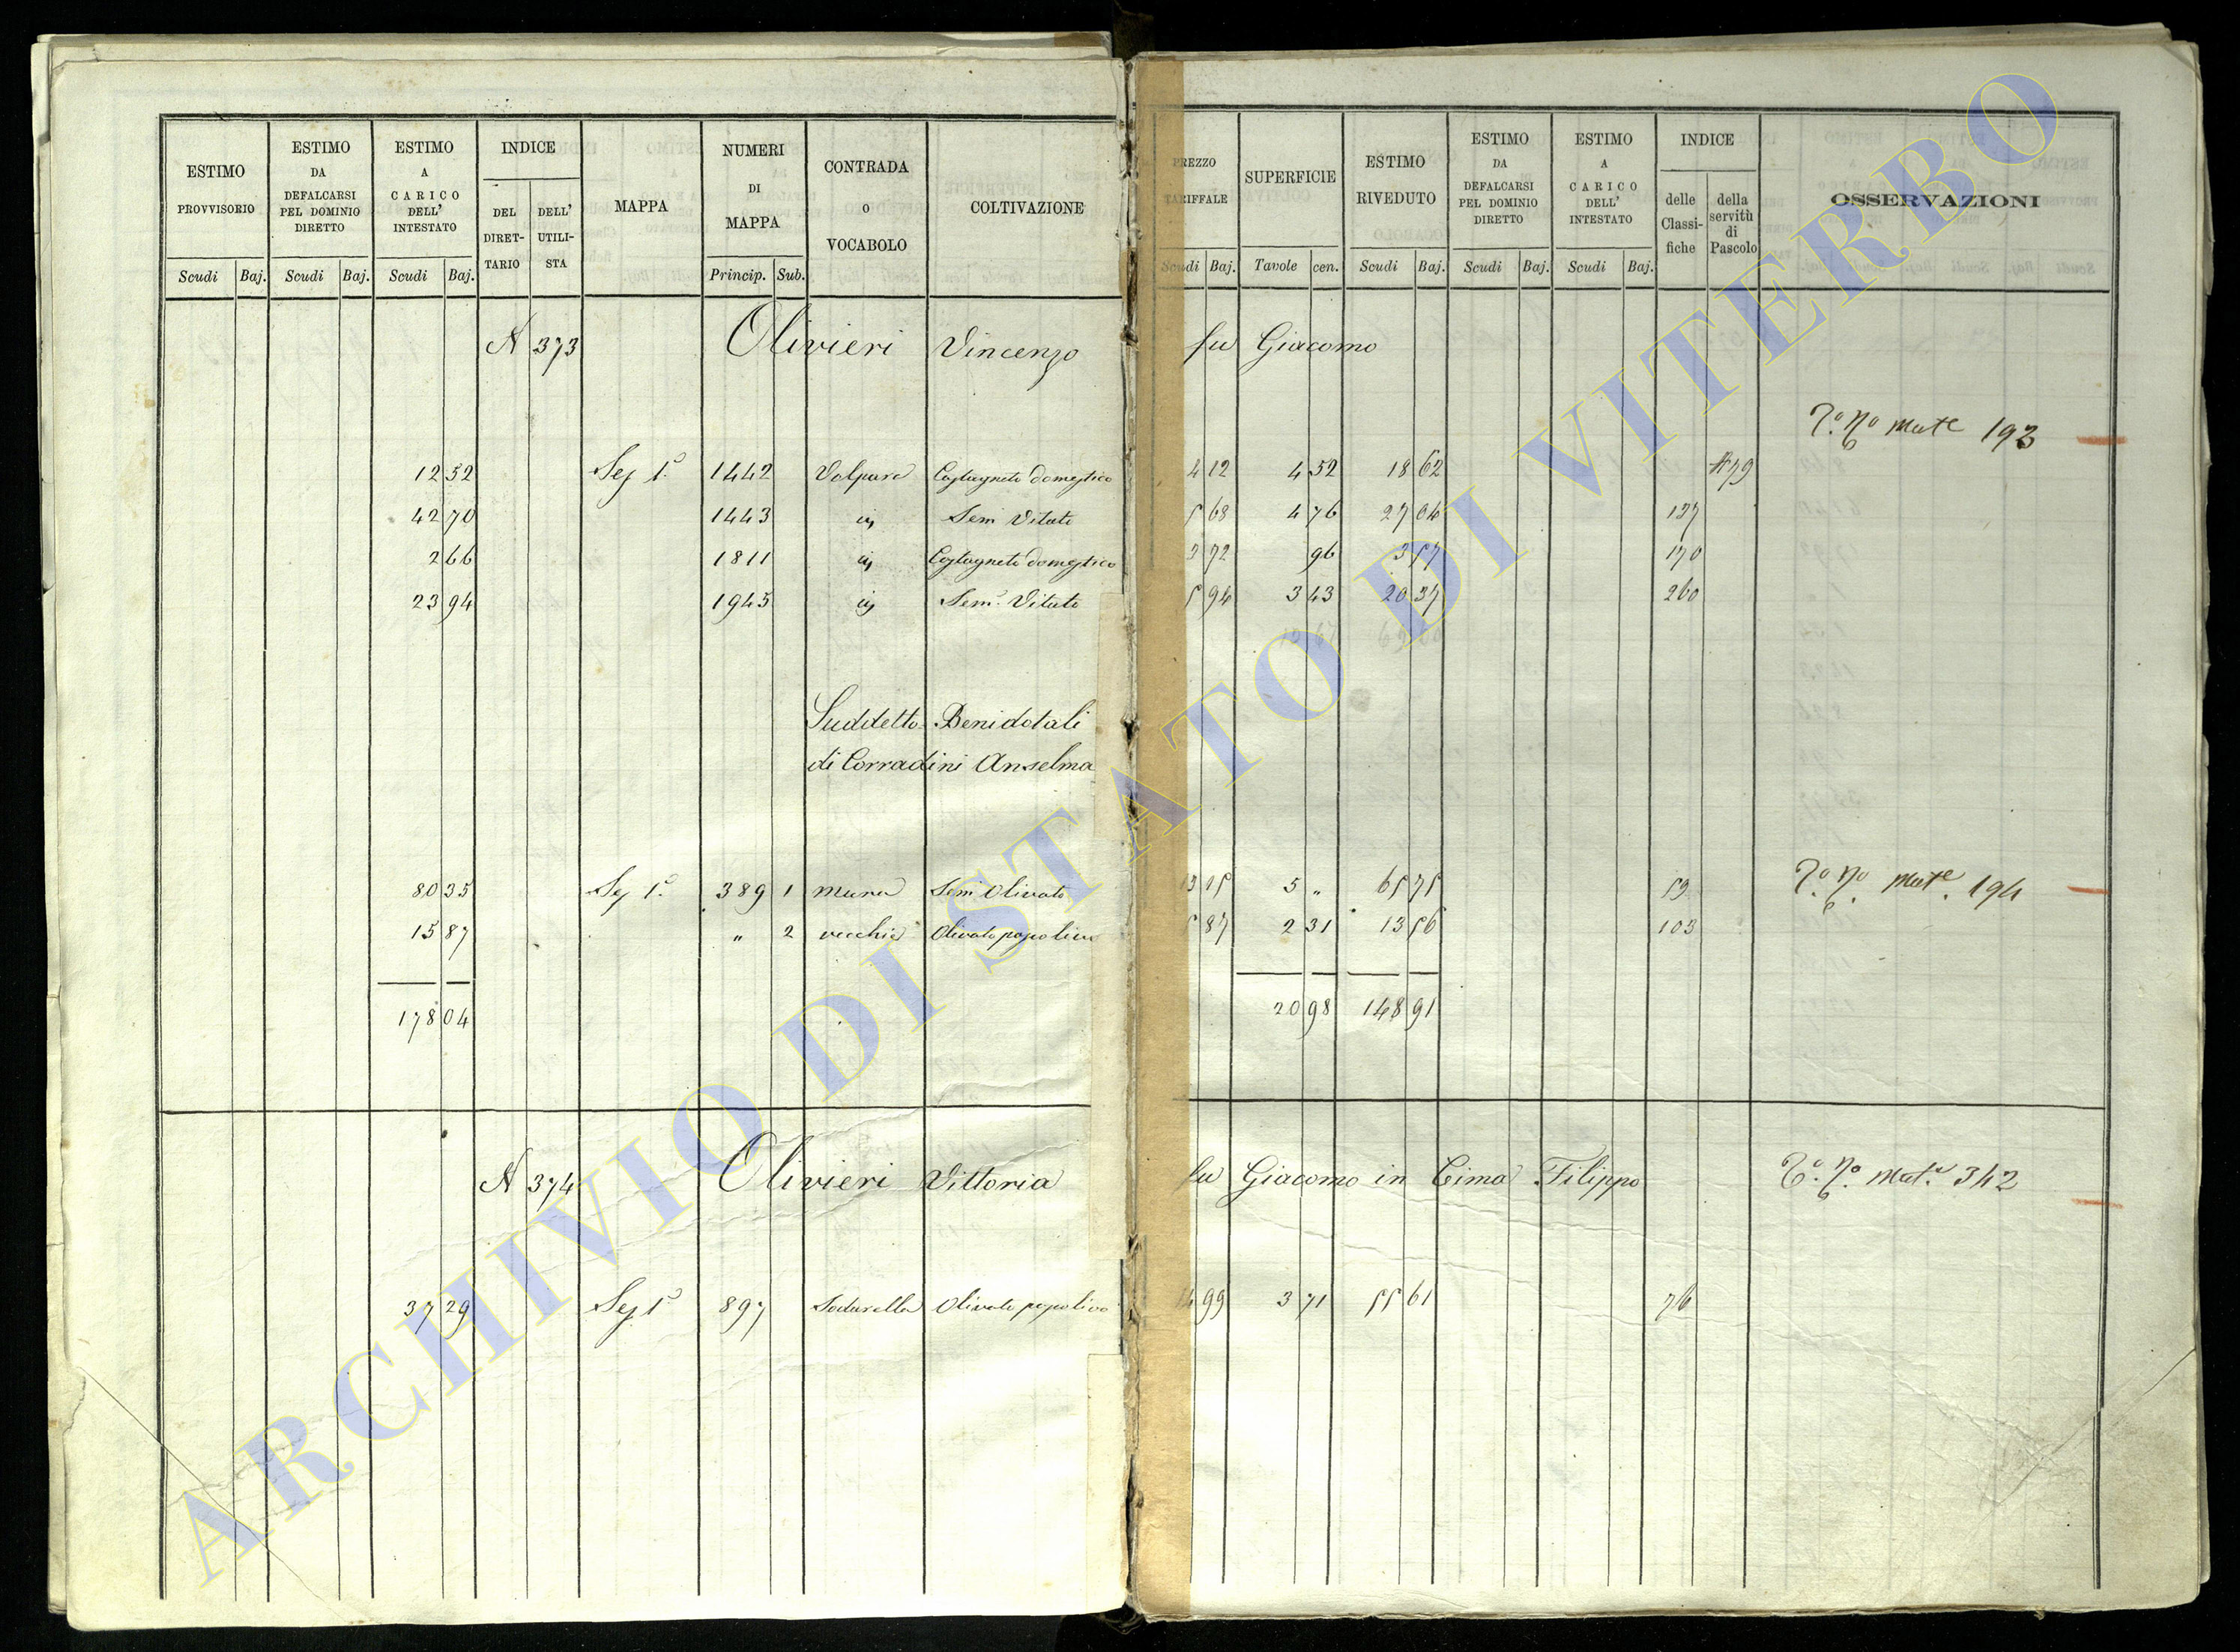 ESTIMO PROVVISORIO | ESTIMO DA DEFALCARSI PEL DOMINIO DIRETTO | ESTIMO A CARICO DELL' INTESTATO | INDICE DEL DIRETTARIO | DELL' UTILISTA | MAPPA | NUMERI DI MAPPA | CONTRADA O VOCABOLO | COLTIVAZIONE | PREZZO TARIFFALE | SUPERFICIE | ESTIMO RIVEDUTO | ESTIMO DA DEFALCARSI PEL DOMINIO DIRETTO | ESTIMO A CARICO DELL' INTESTATO | INDICE delle Classifiche | della servitù di Pascolo | OSSERVAZIONI
Scudi Baj. Scudi Baj. Scudi Baj. Princip. Sub. Scudi Baj. Tavole cen. Scudi Baj. Scudi Baj. Scudi Baj.
N 373 Olivieri Vincenzo fu Giacomo
193
12 52 Sez 1a 1442 Volpara Castagneto domestico 4 12 4 52 18 62
42 70 1443 id Sem Vitato 5 68 4 76 27 04 137
2 66 1811 id Castagneto domestico 3 72 96 3 57 170
23 94 1945 id Sem. Vitato 5 94 3 43 20 37 260
Suddetto Beni dotali
di Corradini Anselma
80 35 Sez 1a 389 1 Mura Sem Olivato 13 15 5 " 65 75 59 194
15 87 " 2 vecchie Olivato 5 87 2 31 13 56 103
178 04 20 98 148 91
N 374 Olivieri Vittoria fu Giacomo in Cima Filippo 342
37 29 Sez 1a 897 Olivato 14 99 3 71 55 61 76
ARCHIVIO DI STATO DI VITERBO